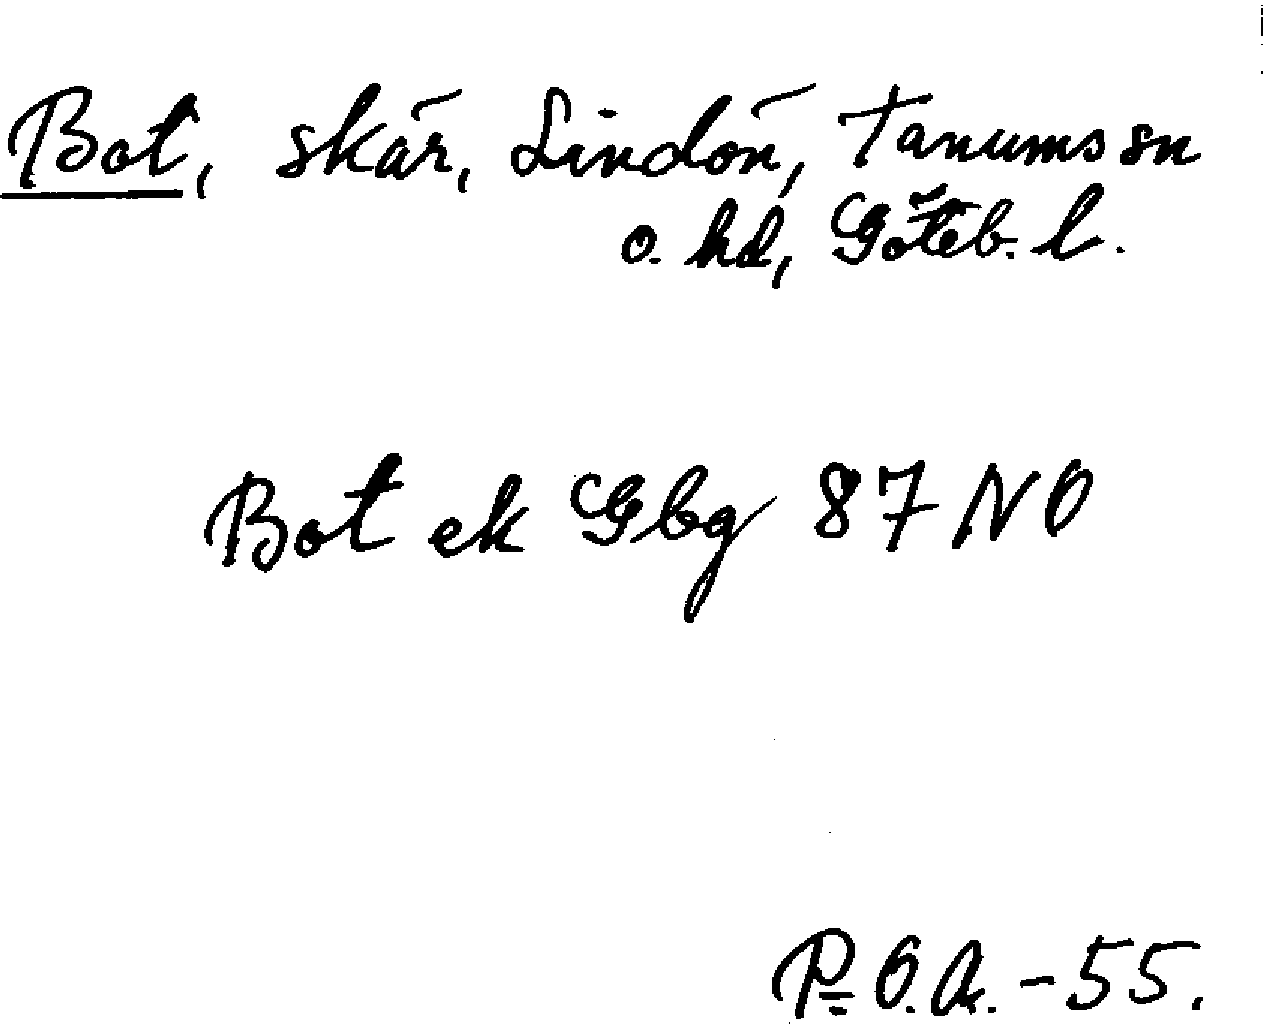 Bot, skär, Lindön, Tanums sn
o. hd, Göteb. l.
Bot ek Gbg 87 NO
P. O. A. - 55.